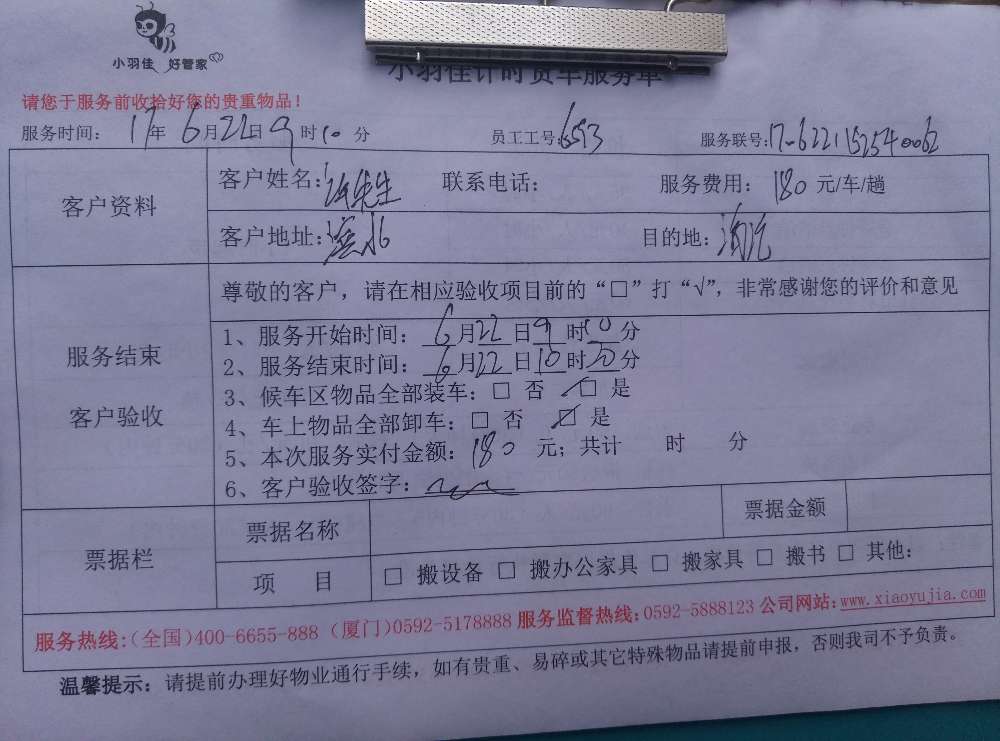 小羽佳 好管家
小羽佳计时货车服务单
请您于服务前收拾好您的贵重物品！
服务时间： 17年 6月22日9时10分 员工工号:6593 服务联号:17-6221152540062
客户资料
客户姓名: 先生 联系电话： 服务费用： 180 元/车/趟
客户地址: 目的地：
尊敬的客户，请在相应验收项目前的“□”打“√”，非常感谢您的评价和意见
服务结束
客户验收
1、服务开始时间： 6月22日9时10分
2、服务结束时间： 6月22日10时50分
3、候车区物品全部装车：□ 否 □ 是
4、车上物品全部卸车：□ 否 ☑ 是
5、本次服务实付金额：180 元；共计 时 分
6、客户验收签字：
票据栏
票据名称 票据金额
项 目 □ 搬设备 □ 搬办公家具 □ 搬家具 □ 搬书 □ 其他：
服务热线：(全国)400-6655-888 (厦门)0592-5178888 服务监督热线：0592-5888123 公司网站：www.xiaoyujia.com
温馨提示：请提前办理好物业通行手续，如有贵重、易碎或其它特殊物品请提前申报，否则我司不予负责。